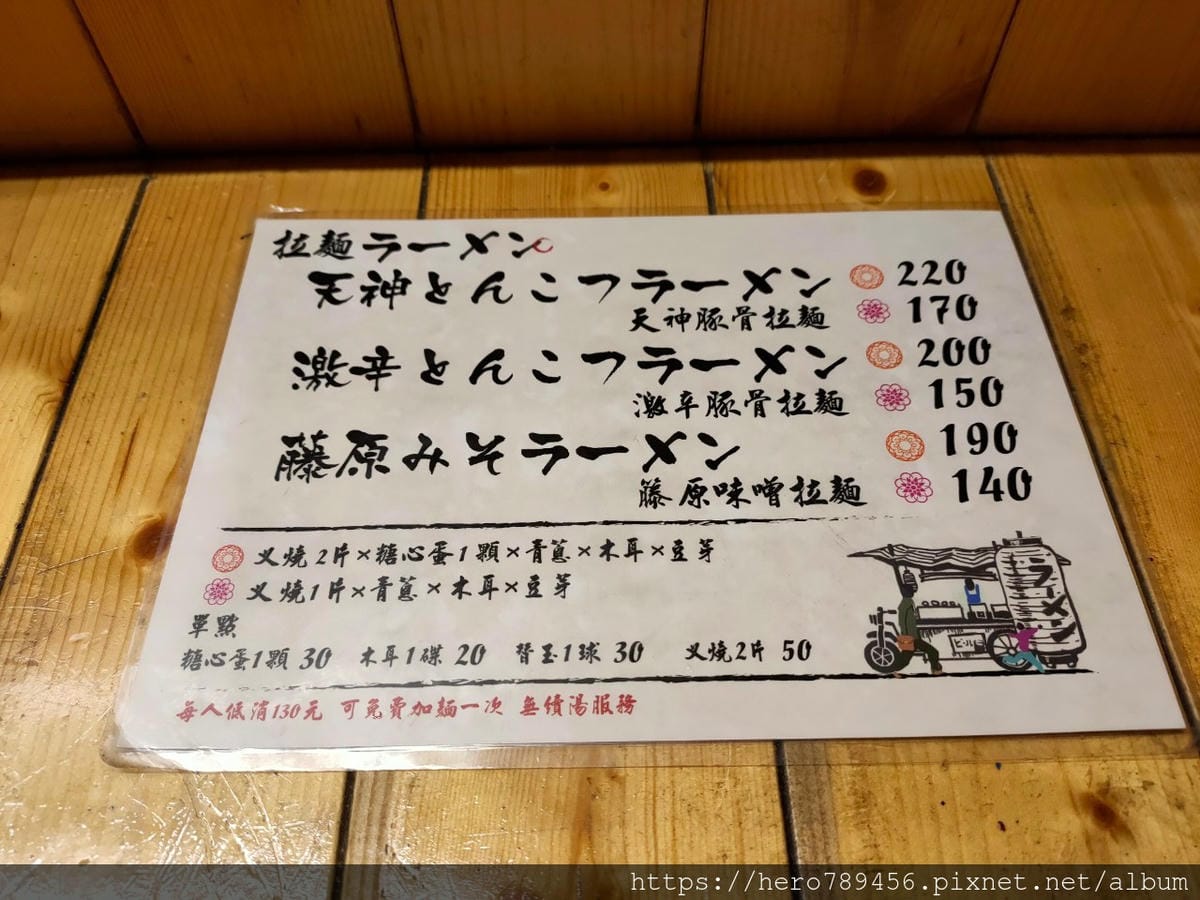 拉麵 ラーメン
天神とんこつラーメン 220
天神豚骨拉麵 170
激辛とんこつラーメン 200
激辛豚骨拉麵 150
藤原みそラーメン 190
籐原味噌拉麵 140
叉燒2片×糖心蛋1顆×青蔥×木耳×豆芽
叉燒1片×青蔥×木耳×豆芽
單點
糖心蛋1顆 30 木耳1碟 20 替玉1球 30 叉燒2片 50
每人低消130元 可免費加麵一次 無續湯服務
ラーメン
ビール
https://hero789456.pixnet.net/album